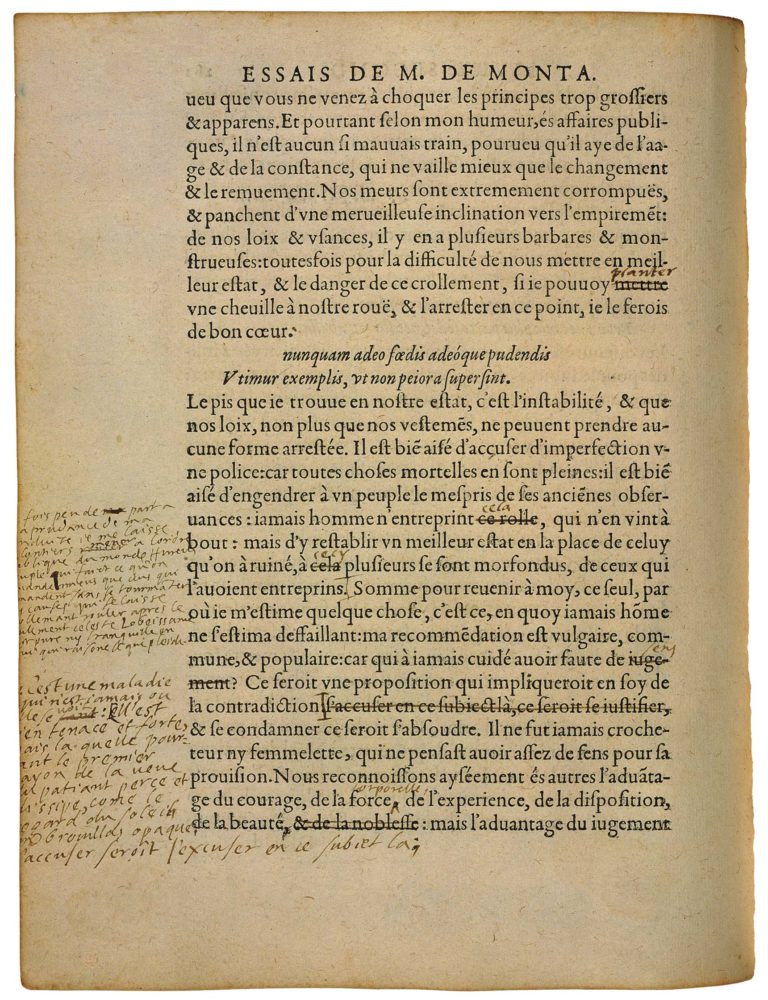 ESSAIS DE M. DE MONTA.
ueu que vous ne venez à choquer les principes trop groſſiers
& apparens. Et pourtant ſelon mon humeur, és affaires publi-
ques, il n'eſt aucun ſi mauuais train, pourueu qu'il aye de l'aa-
ge & de la conſtance, qui ne vaille mieux que le changement
& le remuement. Nos meurs ſont extremement corrompuës,
& panchent d'vne merueilleuse inclination vers l'empiremēt:
de nos loix & vſances, il y en a pluſieurs barbares & mon-
ſtrueuſes: toutesfois pour la difficulté de nous mettre en meil-
planter
leur eſtat, & le danger de ce crollement, ſi ie pouuoy mettre
vne cheuille à noſtre rouë, & l'arreſter en ce point, ie le ferois
de bon cœur.
nunquam adeo fœdis adeóque pudendis
Vtimur exemplis, vt non peiora ſuperſint.
Le pis que ie trouue en noſtre eſtat, c'eſt l'inſtabilité, & que
nos loix, non plus que nos veſtemēs, ne peuuent prendre au-
cune forme arreſtée. Il eſt biē aiſé d'accuſer d'imperfection v-
ne police: car toutes choſes mortelles en ſont pleines: il eſt biē
aiſé d'engendrer à vn peuple le meſpris de ſes anciēnes obſer-
cela
uances: iamais homme n'entreprint ce rolle, qui n'en vint à
bout: mais d'y reſtablir vn meilleur eſtat en la place de celuy
cecy
qu'on à ruiné, à cela pluſieurs ſe ſont morfondus, de ceux qui
l'auoient entreprins. Somme pour reuenir à moy, ce ſeul, par
où ie m'eſtime quelque choſe, c'eſt ce, en quoy iamais hōme
ne ſ'eſtima deffaillant: ma recommēdation eſt vulgaire, com-
sens
mune, & populaire: car qui à iamais cuidé auoir faute de iuge-
ment? Ce ſeroit vne propoſition qui impliqueroit en ſoy de
la contradiction ſ'accuſer en ce ſubiect là, ce ſeroit ſe iuſtifier,
& ſe condamner ce ſeroit ſ'abſoudre. Il ne fut iamais croche-
teur ny femmelette, qui ne penſaſt auoir aſſez de ſens pour ſa
prouiſion. Nous reconnoiſſons ayſéement és autres l'aduāta-
corporelle
ge du courage, de la force, de l'experience, de la diſpoſition,
de la beauté, & de la nobleſſe: mais l'aduantage du iugement
prudance de ma
ie me laisse
du monde
celeste
C'est une maladie
qui n'est jamais ou
elle se voit: Ell'est
tenace et forte,
mais la quelle pour-
tant le premier
rayon de la veue
du patiant perce et
dissipe, come le
regard du soleil
un brouillas opaque
s'accuser seroit s'excuser en ce subiet la;